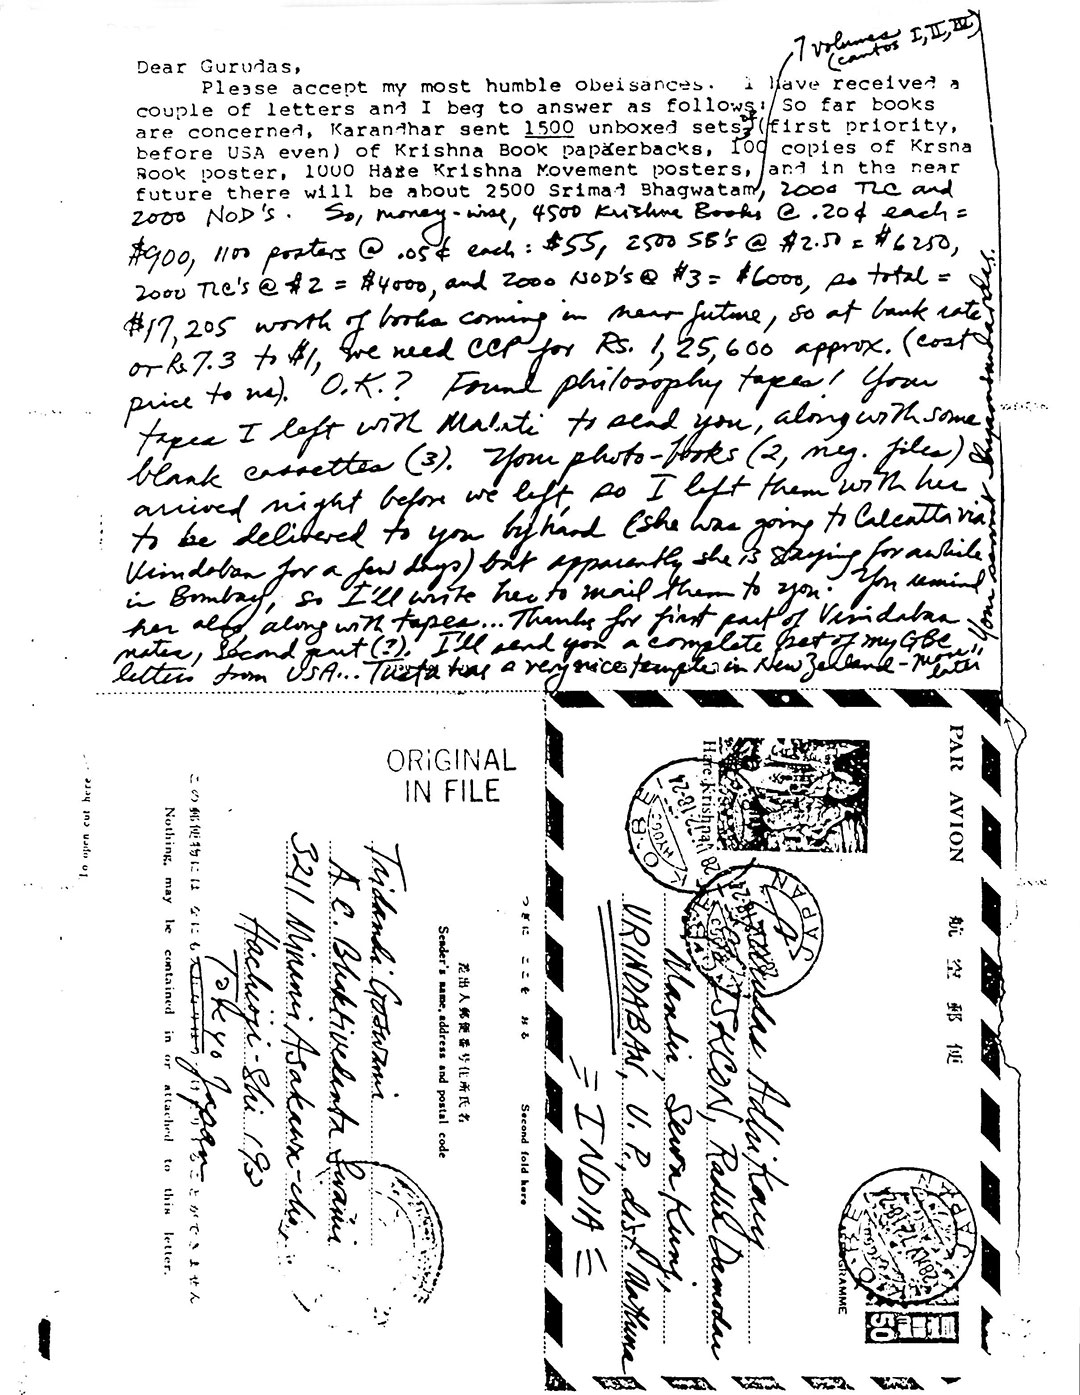 7 volumes
(cantos I, II, IV)
Dear Gurudas,
Please accept my most humble obeisances. I have received a
couple of letters and I beg to answer as follows: So far books
are concerned, Karandhar sent 1500 unboxed sets (first priority,
before USA even) of Krishna Book papxerbacks, 100 copies of Krsna
Book poster, 1000 Hare Krishna Movement posters, and in the near
future there will be about 2500 Srimad Bhagwatam, 2000 TLC and
2000 NOD's. So, money-wise, 4500 Krishna Books @ .20¢ each =
$900, 1100 posters @ .05¢ each = $55, 2500 SB's @ $2.50 = $6250,
2000 TLC's @ $2 = $4000, and 2000 NOD's @ $3 = $6000, so total =
$17,205 worth of books coming in near future, so at bank rate
or Rs 7.3 to $1, we need CCP for Rs. 1,25,600 approx. (cost
price to us). O.K.? Found philosophy tapes! Your
tapes I left with Malati to send you, along with some
blank cassettes (3). Your photo-books (2, neg. files)
arrived night before we left, so I left them with her
to be delivered to you by hand (she was going to Calcutta via
Vrindaban for a few days) but apparently she is staying for awhile
in Bombay, so I'll write her to mail them to you. You remind
her also, along with tapes... Thanks for first part of Vrindaban
notes, second part (?). I'll send you a complete set of my GBC
letters from USA... Tusta has a very nice temple in New Zealand - more
later
Your servant Shyamsundardas.
ORIGINAL
IN FILE
To open cut here
この郵便物には なにも
ことができません
Nothing may be contained in or attached to this letter.
Tridandi Goswami
A.C. Bhaktivedanta Swami
3211 Minami Asakawa-cho,
Hachioji-Shi 193
Tokyo Japan
差出人郵便番号住所氏名
Sender's name, address and postal code
つぎに ここを おる
Second fold here
PAR AVION 航空郵便
Hare Krishna
KOBE
HYOGO
JAPAN
Gurudas Adhikary
ISKCON, Radha Damodar
Mandir, Sewa Kunj,
VRINDABAN, U.P., dist. Mathura
= INDIA =
JAPAN
KOBE
AEROGRAMME
50